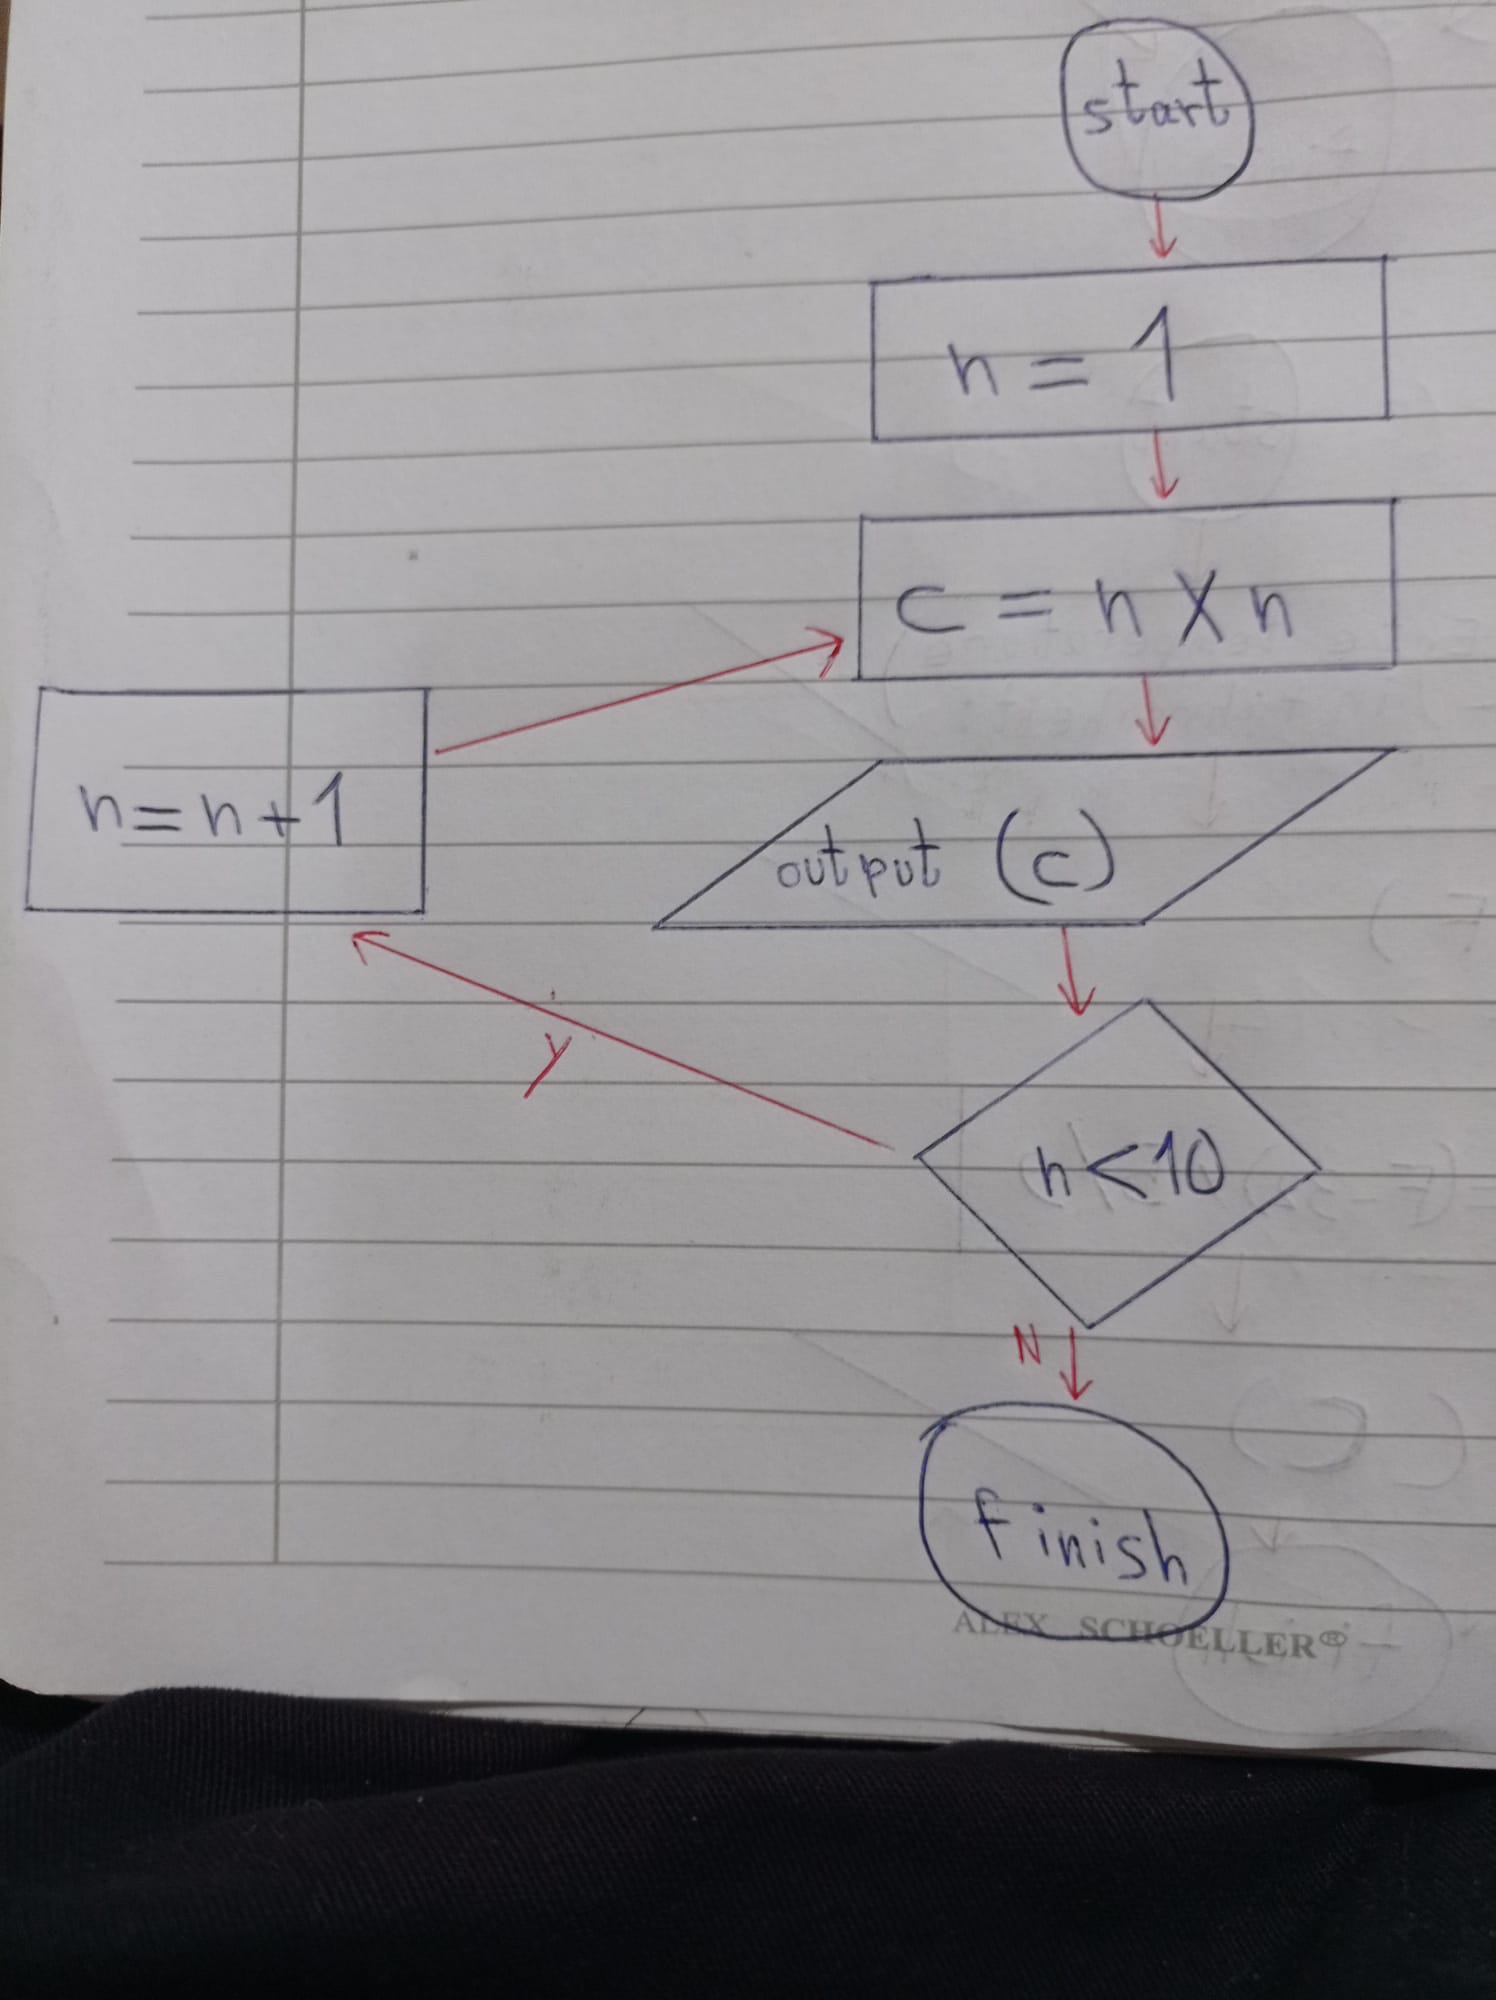 start
n = 1
c = n X n
n = n + 1
output (c)
y
n < 10
N
finish
ALEX SCHOELLER®